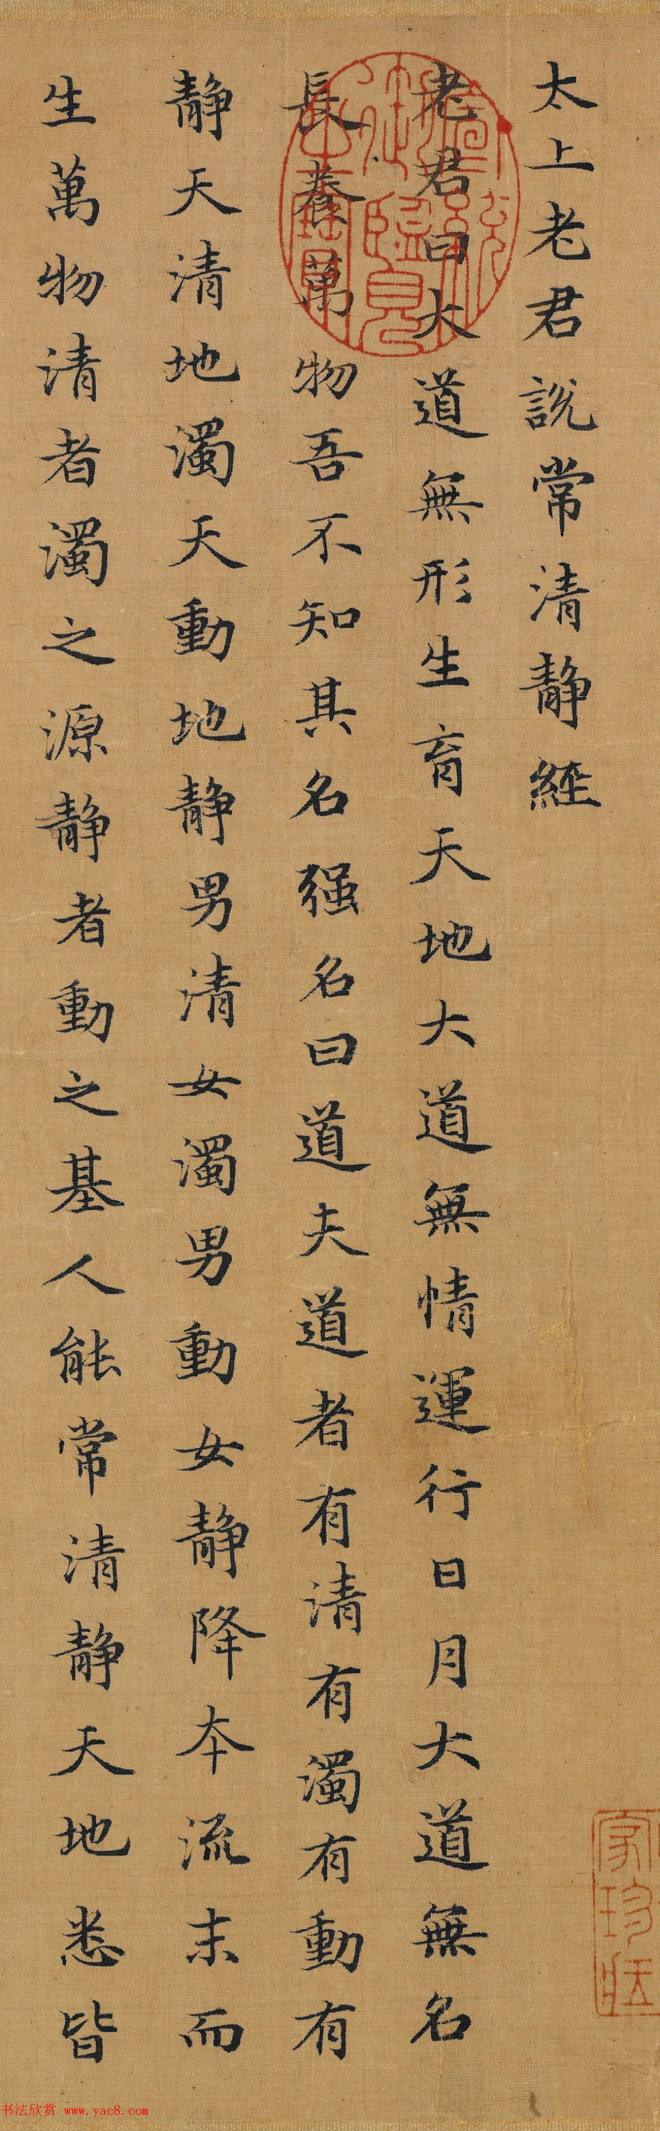 太上老君說常清靜經
老君曰大道無形生育天地大道無情運行日月大道無名
長養萬物吾不知其名强名曰道夫道者有清有濁有動有
靜天清地濁天動地靜男清女濁男動女靜降夲流末而
生萬物清者濁之源靜者動之基人能常清靜天地悉皆
家珍
书法欣赏 www.yac8.com